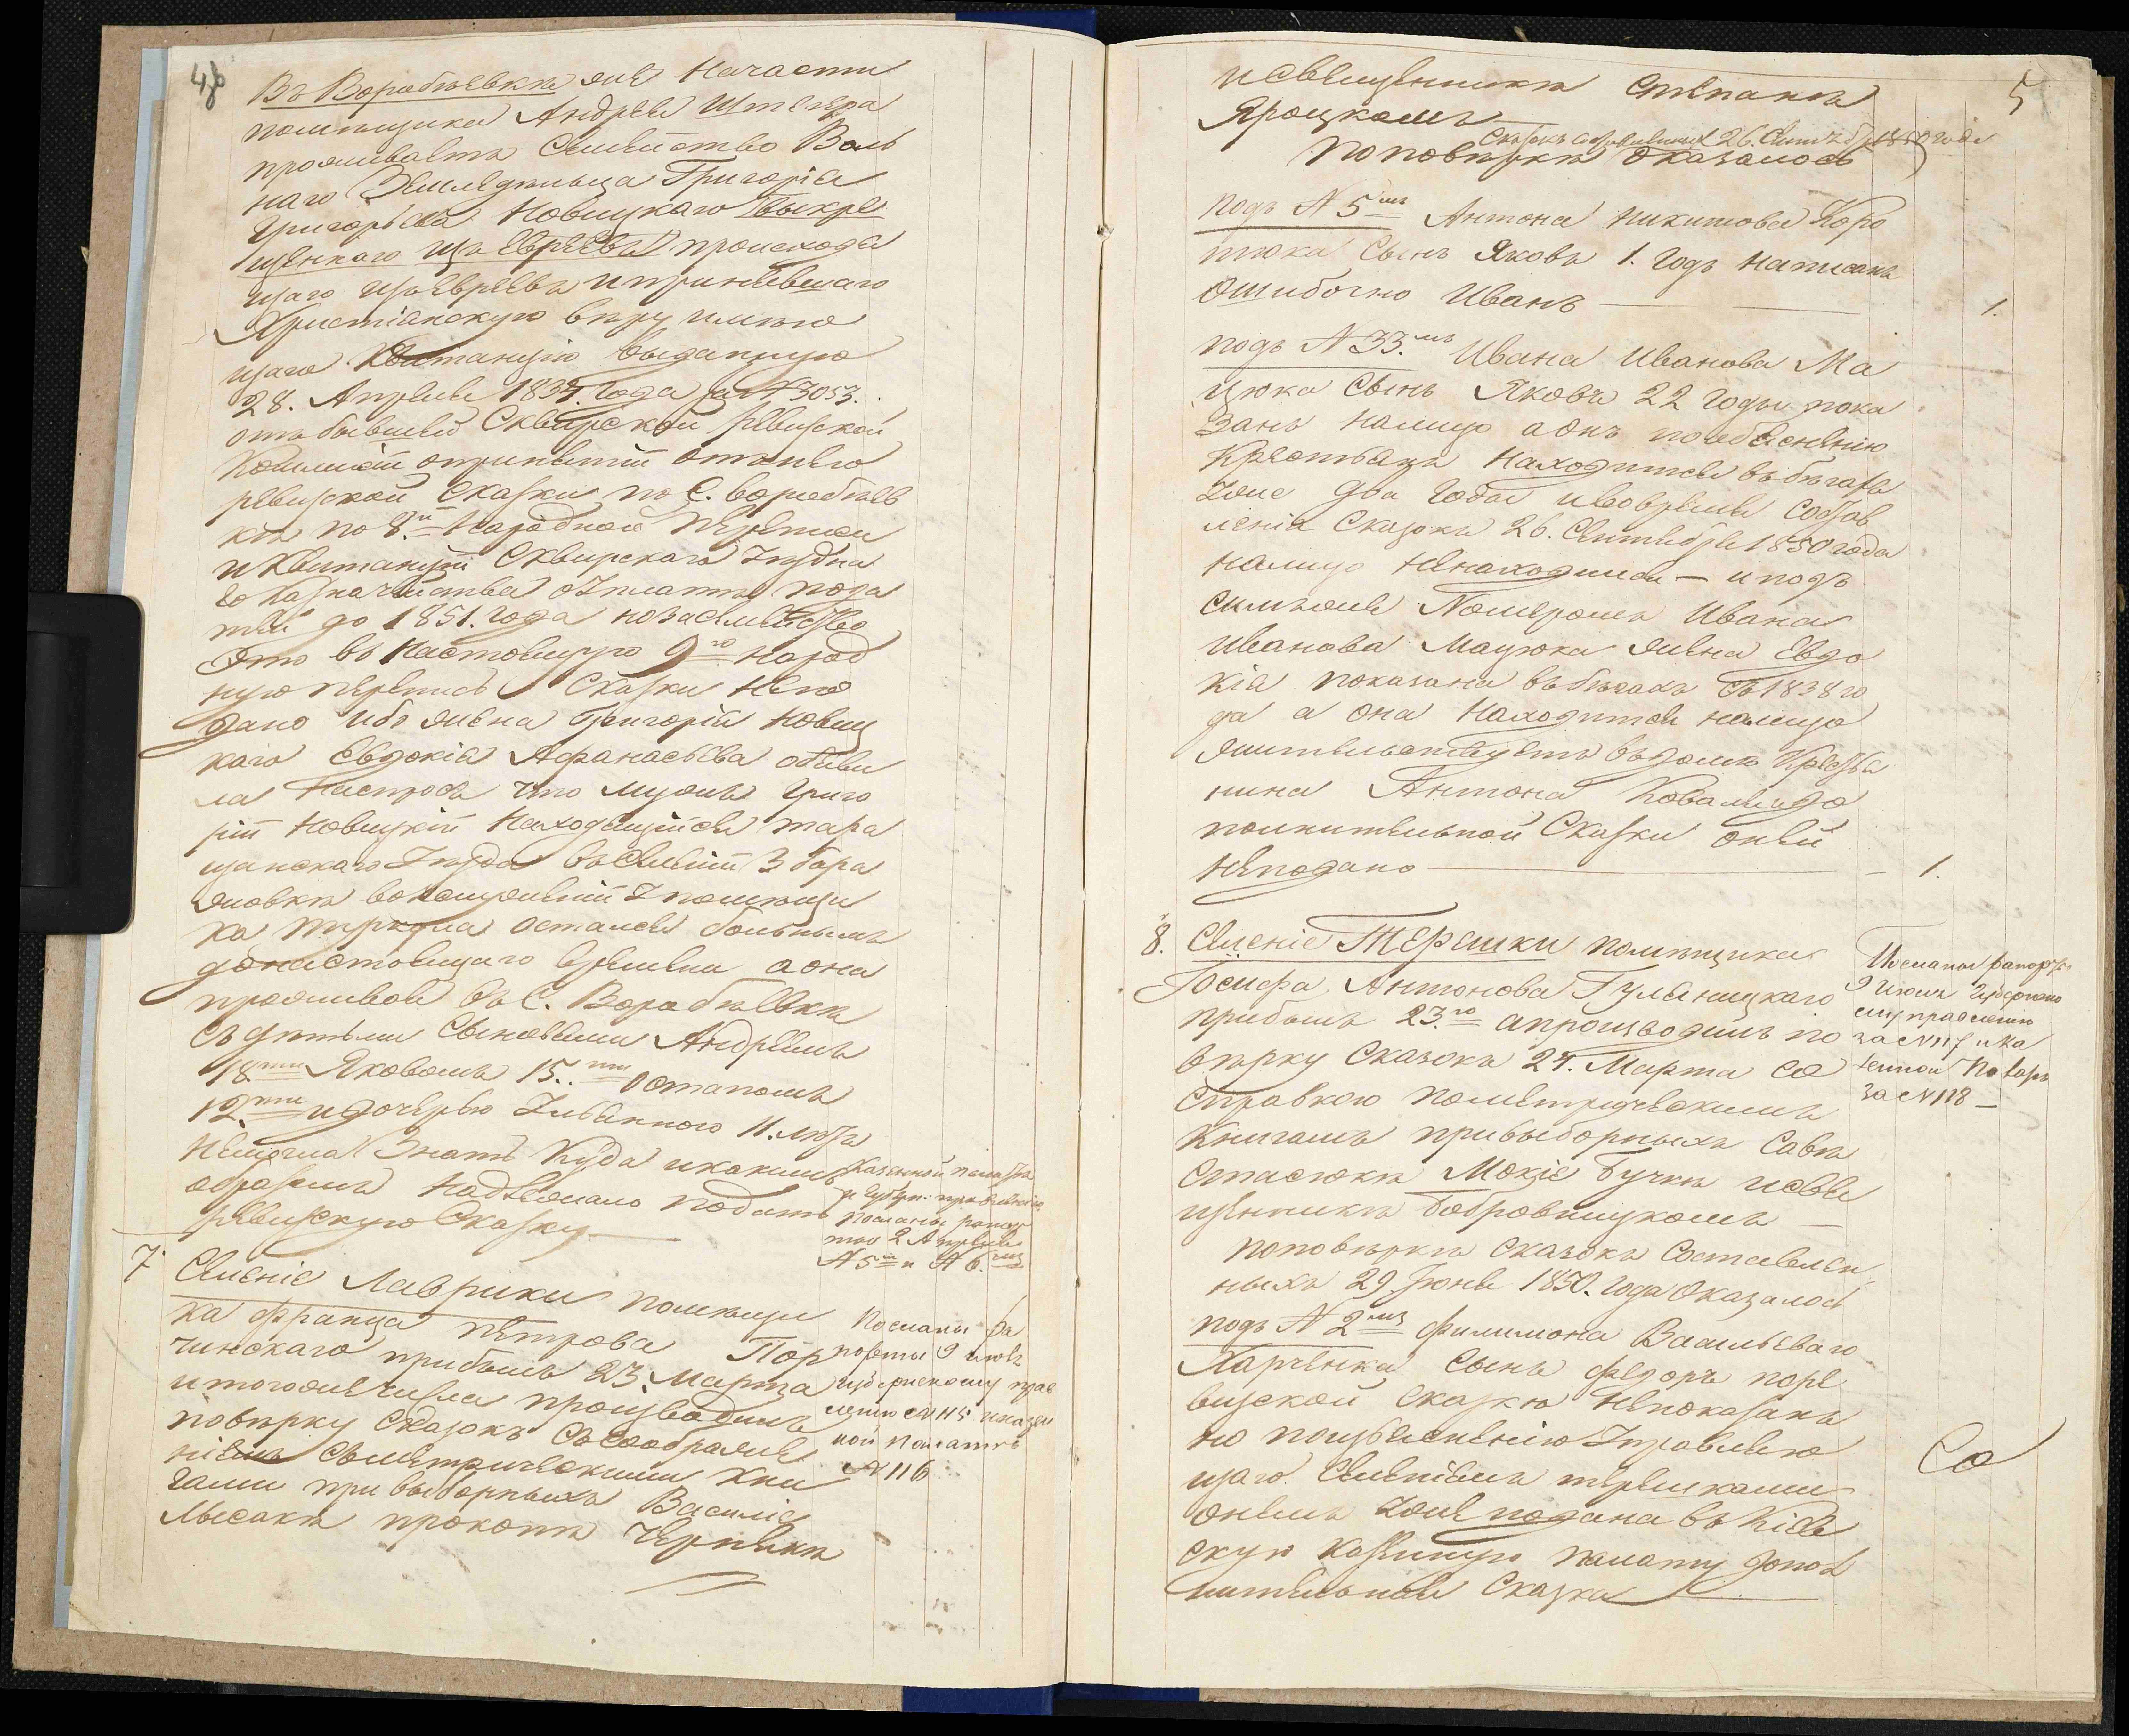 4об
Въ Воробьевкѣ же Начасти
помѣщика Андрея
проживаетъ Семейство Воль
наго Земледѣльца Григорія
Григорьева Новицкаго выкре
щеннаго изъ Евреевъ происходя
щаго изъ Евреевъ и принявшаго
Христіанскую вѣру имѣю
щаго Квитанцію выданную
28. Апреля 1834. года за N 3053.
отъ бывшей Сквирской Ревизской
Коммисіи опринятіи отънего
ревизской Сказки по С. Воробьев
кѣ по 8й Народной Переписи
и Квитанціи Сквирскаго Уѣздна
го Казначейства о уплатѣ пода
тей до 1851. года но за семейство
Это въ Настоящую 9ю народ
ную перепись Сказки непо
дано ибо жена Григорія Новиц
каго Евдокія Афанасьева объяви
ла что мужъ Григо
рій Новицкій Находящійся тара
щанскаго Уѣзда въ Селеніи Збара
жовкѣ во услуженіи у помѣщи
ка остался больнымъ
донастоящаго времени а она
проживая въ С. Воробьевкѣ
съ дѣтьми Сыновьями Андреемъ
18ти Яковомъ 15.ти Остапомъ
12.ти и дочерью 11. лѣтъ
немогла Знать Куда и какимъ
образомъ Надлежало подать
ревизскую Сказку
Казенной палатѣ
и Губерн. правленію
посланы рапор
ты 2 Апреля
N 5мъ и N 6.мъ
7. Селеніе Лаврики помѣщи
ка Франца Петрова Пор
чинскаго прибылъ 23. Марта
и тогоже числа производилъ
повѣрку Сказокъ Съсоображе
ніемъ Съметрическими Кни
гами при выборныхъ Василіѣ
Лысакѣ прокопѣ
Посланы ра
порты 9 Июля
губернскому прав
ленію N 115 и казен
ной палатѣ
N 116
5
и Священникѣ Степанѣ
Яроцкомъ
Сказокъ составленныхъ 26. Сентября 1850 года
По повѣркѣ Оказалось
подъ N 5мъ Антона Никитова Коро
тюка Сынъ Яковъ 1. годъ написанъ
Ошибочно Иванъ 1.
подъ N 33.мъ Ивана Иванова Ма
цюка Сынъ Яковъ 22 годы пока
занъ налицо а онъ пообъясненію
Крестьянъ Находится въ бѣгахъ
уже два года и вовремя Состав
ленія Сказокъ 26. Сентября 1850 года
налицо ненаходился — и подъ
симъже Номеромъ Ивана
Иванова Мацюка жена Евдо
кія показана въбѣгахъ съ 1838 го
да а она Находится налицо
жительствуетъ въ домѣ Крестья
нина Антона Коваля и до
полнительной Сказки оней
неподано — 1.
8. Селеніе Терешки помѣщика
Іосифа Антонова Гуляницкаго
прибылъ 23.го а производилъ по
вѣрку Сказокъ 24. Марта со
Справкою пометрическимъ
Книгамъ привыборныхъ Савѣ
Стасюкѣ Мокіе Бучкѣ и Свя
щенникѣ Бобровницкомъ —
Посланы рапорты
9 Июля Губернско
му правленію
за N 117 и Ка
зенной
за N 118 —
поповѣркѣ сказокъ Составлен
ныхъ 29. Іюня 1850. года Оказалось
подъ N 2мъ Филимона Васильеваго
Харченка Сынъ Федоръ поре
визской Сказкѣ Непоказанъ
но поизъясненію Управляю
щаго Селеніемъ терешками
онемъ уже подана въ Кіев
скую Казенную палату допол
нительная Сказка
Со